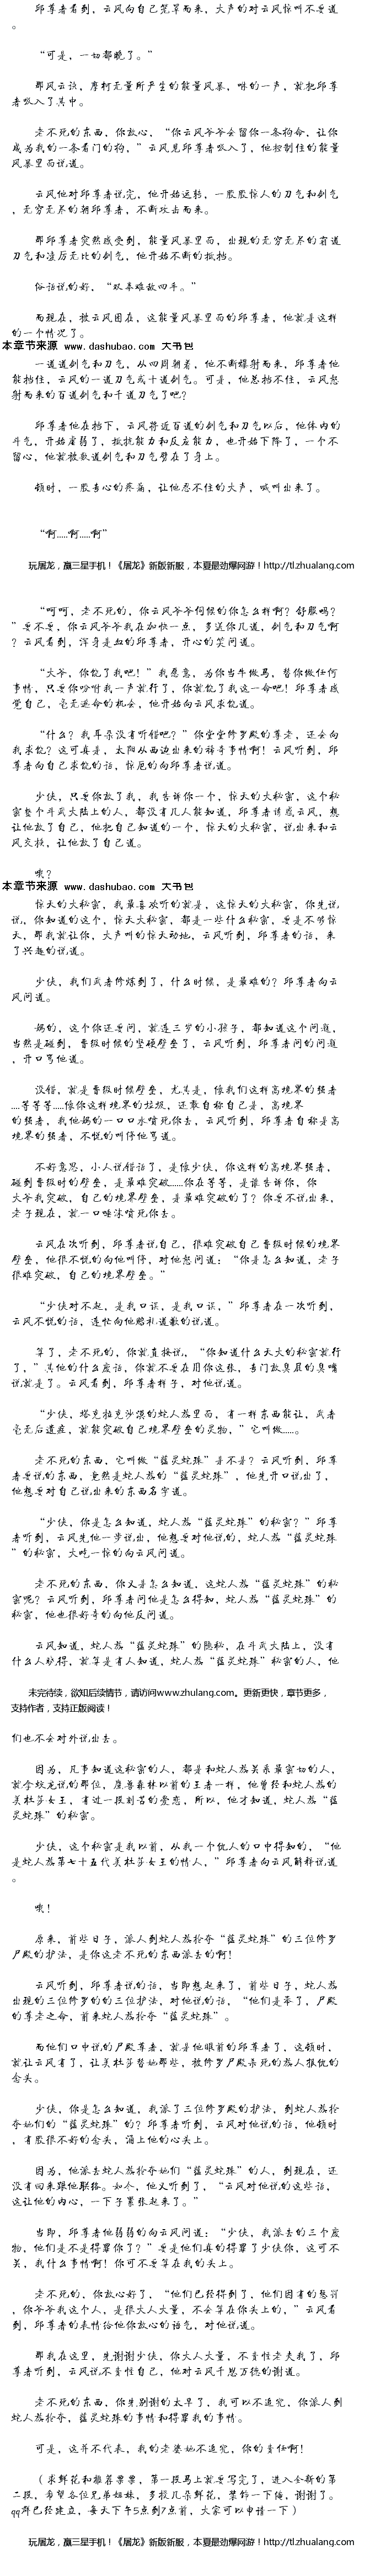 邱尊者看到，云风向自己笼罩而来，大声的对云风惊叫不要道
。
“可是，一切都晚了。”
那风云诀，摩柯无量所产生的能量风暴，咻的一声，就把邱尊
者吸入了其中。
老不死的东西，你放心，“你云风爷爷会留你一条狗命，让你
成为我的一条看门的狗，”云风见邱尊者吸入了，他控制住的能量
风暴里面说道。
云风他对邱尊者说完，他开始运转，一股股惊人的刀气和剑气
，无穷无尽的朝邱尊者，不断攻击而来。
那邱尊者突然感受到，能量风暴里面，出现的无穷无尽的霸道
刀气和凌厉无比的剑气，他开始不断的抵挡。
俗话说的好，“双拳难敌四手。”
而现在，被云风困在，这能量风暴里面的邱尊者，他就是这样
的一个情况了。
本章节来源 www.dashubao.com 大书包
一道道剑气和刀气，从四周朝着，他不断爆射而来，邱尊者他
能挡住，云风的一道刀气或十道剑气。可是，他怎挡不住，云风怒
射而来的百道剑气和千道刀气了吧？
邱尊者他在挡下，云风将近百道的剑气和刀气以后，他体内的
斗气，开始虚弱了，抵抗能力和反应能力，也开始下降了，一个不
留心，他就被数道剑气和刀气劈在了身上。
顿时，一股钻心的疼痛，让他忍不住的大声，喊叫出来了。
“啊.....啊.....啊”
玩屠龙，赢三星手机！《屠龙》新版新服，本夏最劲爆网游！http://tl.zhualang.com
“呵呵，老不死的，你云风爷爷伺候的你怎么样啊？舒服吗？
”要不要，你云风爷爷我在加快一点，多送你几道，剑气和刀气啊
？云风看到，浑身是血的邱尊者，开心的笑问道。
“大爷，你饶了我吧！”我愿意，为你当牛做马，替你做任何
事情，只要你吩咐我一声就行了，你就饶了我这一命吧！邱尊者感
觉自己，毫无逃命的机会，他开始向云风求饶道。
“什么？我耳朵没有听错吧？”你堂堂修罗殿的尊老，还会向
我求饶？这可真是，太阳从西边出来的稀奇事情啊！云风听到，邱
尊者向自己求饶的话，惊厄的向邱尊者说道。
少侠，只要你放了我，我告诉你一个，惊天的大秘密，这个秘
密整个斗武大陆上的人，都没有几人能知道，邱尊者诱惑云风，想
让他放了自己，他把自己知道的一个，惊天的大秘密，说出来和云
风交换，让他放了自己道。
哦？
本章节来源 www.dashubao.com 大书包
惊天的大秘密，我最喜欢听的就是，这惊天的大秘密，你先说
说，你知道的这个，惊天大秘密，都是一些什么秘密，要是不够惊
天，那我就让你，大声叫的惊天动地，云风听到，邱尊者的话，来
了兴趣的说道。
少侠，我们武者修炼到了，什么时候，是最难的？邱尊者向云
风问道。
妈的，这个你还要问，就连三岁的小孩子，都知道这个问题，
当然是碰到，晋级时候的坚硬壁垒了，云风听到，邱尊者问的问题
，开口骂他道。
没错，就是晋级时候壁垒，尤其是，像我们这样高境界的强者
....等等等.....像你这样境界的垃圾，还敢自称自己是，高境界
的强者，我他妈的一口口水喷死你去，云风听到，邱尊者自称是高
境界的强者，不悦的叫停他骂道。
不好意思，小人说错话了，是像少侠，你这样的高境界强者，
碰到晋级时的壁垒，是最难突破......你在等等，是谁告诉你，你
大爷我突破，自己的境界壁垒，是最难突破的了？你要不说出来，
老子现在，就一口唾沫喷死你去。
云风在次听到，邱尊者说自己，很难突破自己晋级时候的境界
壁垒，他很不悦的向他叫停，对他怒问道：“你是怎么知道，老子
很难突破，自己的境界壁垒。”
“少侠对不起，是我口误，是我口误，”邱尊者在一次听到，
云风不悦的话，连忙向他赔礼道歉的说道。
算了，老不死的，你就直接说，“你知道什么天大的秘密就行
了，”其他的什么废话，你就不要在用你这张，专门放臭屁的臭嘴
说就是了。云风看到，邱尊者样子，对他说道。
“少侠，塔克拉克沙漠的蛇人族里面，有一样东西能让，武者
毫无后遗症，就能突破自己境界壁垒的灵物，”它叫做.....。
老不死的东西，它叫做“蓝灵蛇珠”是不是？云风听到，邱尊
者要说的东西，竟然是蛇人族的“蓝灵蛇珠”，他先开口说出了，
他想要对自己说出来的东西名字道。
“少侠，你是怎么知道，蛇人族“蓝灵蛇珠”的秘密？”邱尊
者听到，云风先他一步说出，他想要对他说的，蛇人族“蓝灵蛇珠
”的秘密，大吃一惊的向云风问道。
老不死的东西，你又是怎么知道，这蛇人族“蓝灵蛇珠”的秘
密呢？云风听到，邱尊者问他是怎么得知，蛇人族“蓝灵蛇珠”的
秘密，他也很好奇的向他反问道。
云风知道，蛇人族“蓝灵蛇珠”的隐秘，在斗武大陆上，没有
什么人晓得，就算是有人知道，蛇人族“蓝灵蛇珠”秘密的人，他
未完待续，欲知后续情节，请访问www.zhulang.com。更新更快，章节更多，
支持作者，支持正版阅读！
们也不会对外说出去。
因为，凡事知道这秘密的人，都是和蛇人族关系最密切的人，
就拿蛟龙说的那位，魔兽森林以前的王者一样，他曾经和蛇人族的
美杜莎女王，有过一段刻苦的爱恋，所以，他才知道，蛇人族“蓝
灵蛇珠”的秘密。
少侠，这个秘密是我以前，从我一个仇人的口中得知的，“他
是蛇人族第七十五代美杜莎女王的情人，”邱尊者向云风解释说道
。
哦！
原来，前些日子，派人到蛇人族抢夺“蓝灵蛇珠”的三位修罗
尸殿的护法，是你这老不死的东西派去的啊！
云风听到，邱尊者说的话，当即想起来了，前些日子，蛇人族
出现的三位修罗的的三位护法，对他说的话，“他们是奉了，尸殿
的尊老之命，前来蛇人族抢夺“蓝灵蛇珠”。
而他们口中说的尸殿尊者，就是他眼前的邱尊者了，这顿时，
就让云风有了，让美杜莎替她那些，被修罗尸殿杀死的族人报仇的
念头。
少侠，你是怎么知道，我派了三位修罗殿的护法，到蛇人族抢
夺她们的“蓝灵蛇珠”的？邱尊者听到，云风对他说的话，他顿时
，有股很不好的念头，涌上他的心头上。
因为，他派去蛇人族抢夺她们“蓝灵蛇珠”的人，到现在，还
没有回来跟他联络。如今，他又听到了，“云风对他说的这些话，
这让他的内心，一下子紧张起来了。”
当即，邱尊者他弱弱的向云风问道：“少侠，我派去的三个废
物，他们是不是得罪你了？”要是他们真的得罪了少侠你，这可不
关，我什么事情啊！你可不要算在我的头上。
老不死的，你放心好了，“他们已经得到了，他们因有的惩罚
，你爷爷我这个人，是很大人大量，不会算在你头上的，”云风看
到，邱尊者的表情给他你放心的语气，对他说道。
那我在这里，先谢谢少侠，你大人大量，不责怪老夫我了，邱
尊者听到，云风说不责怪自己，他对云风千恩万德的谢道。
老不死的东西，你先别谢的太早了，我可以不追究，你派人到
蛇人族抢夺，蓝灵蛇珠的事情和得罪我的事情。
可是，这并不代表，我的老婆她不追究，你的责任啊！
（求鲜花和推荐票票，第一段马上就要写完了，进入全新的第
二段，希望各位兄弟姐妹，多投几朵鲜花，装饰一下楼，谢谢了。
qq群已经建立，每天下午5点到7点前，大家可以申请一下）
玩屠龙，赢三星手机！《屠龙》新版新服，本夏最劲爆网游！http://tl.zhualang.com